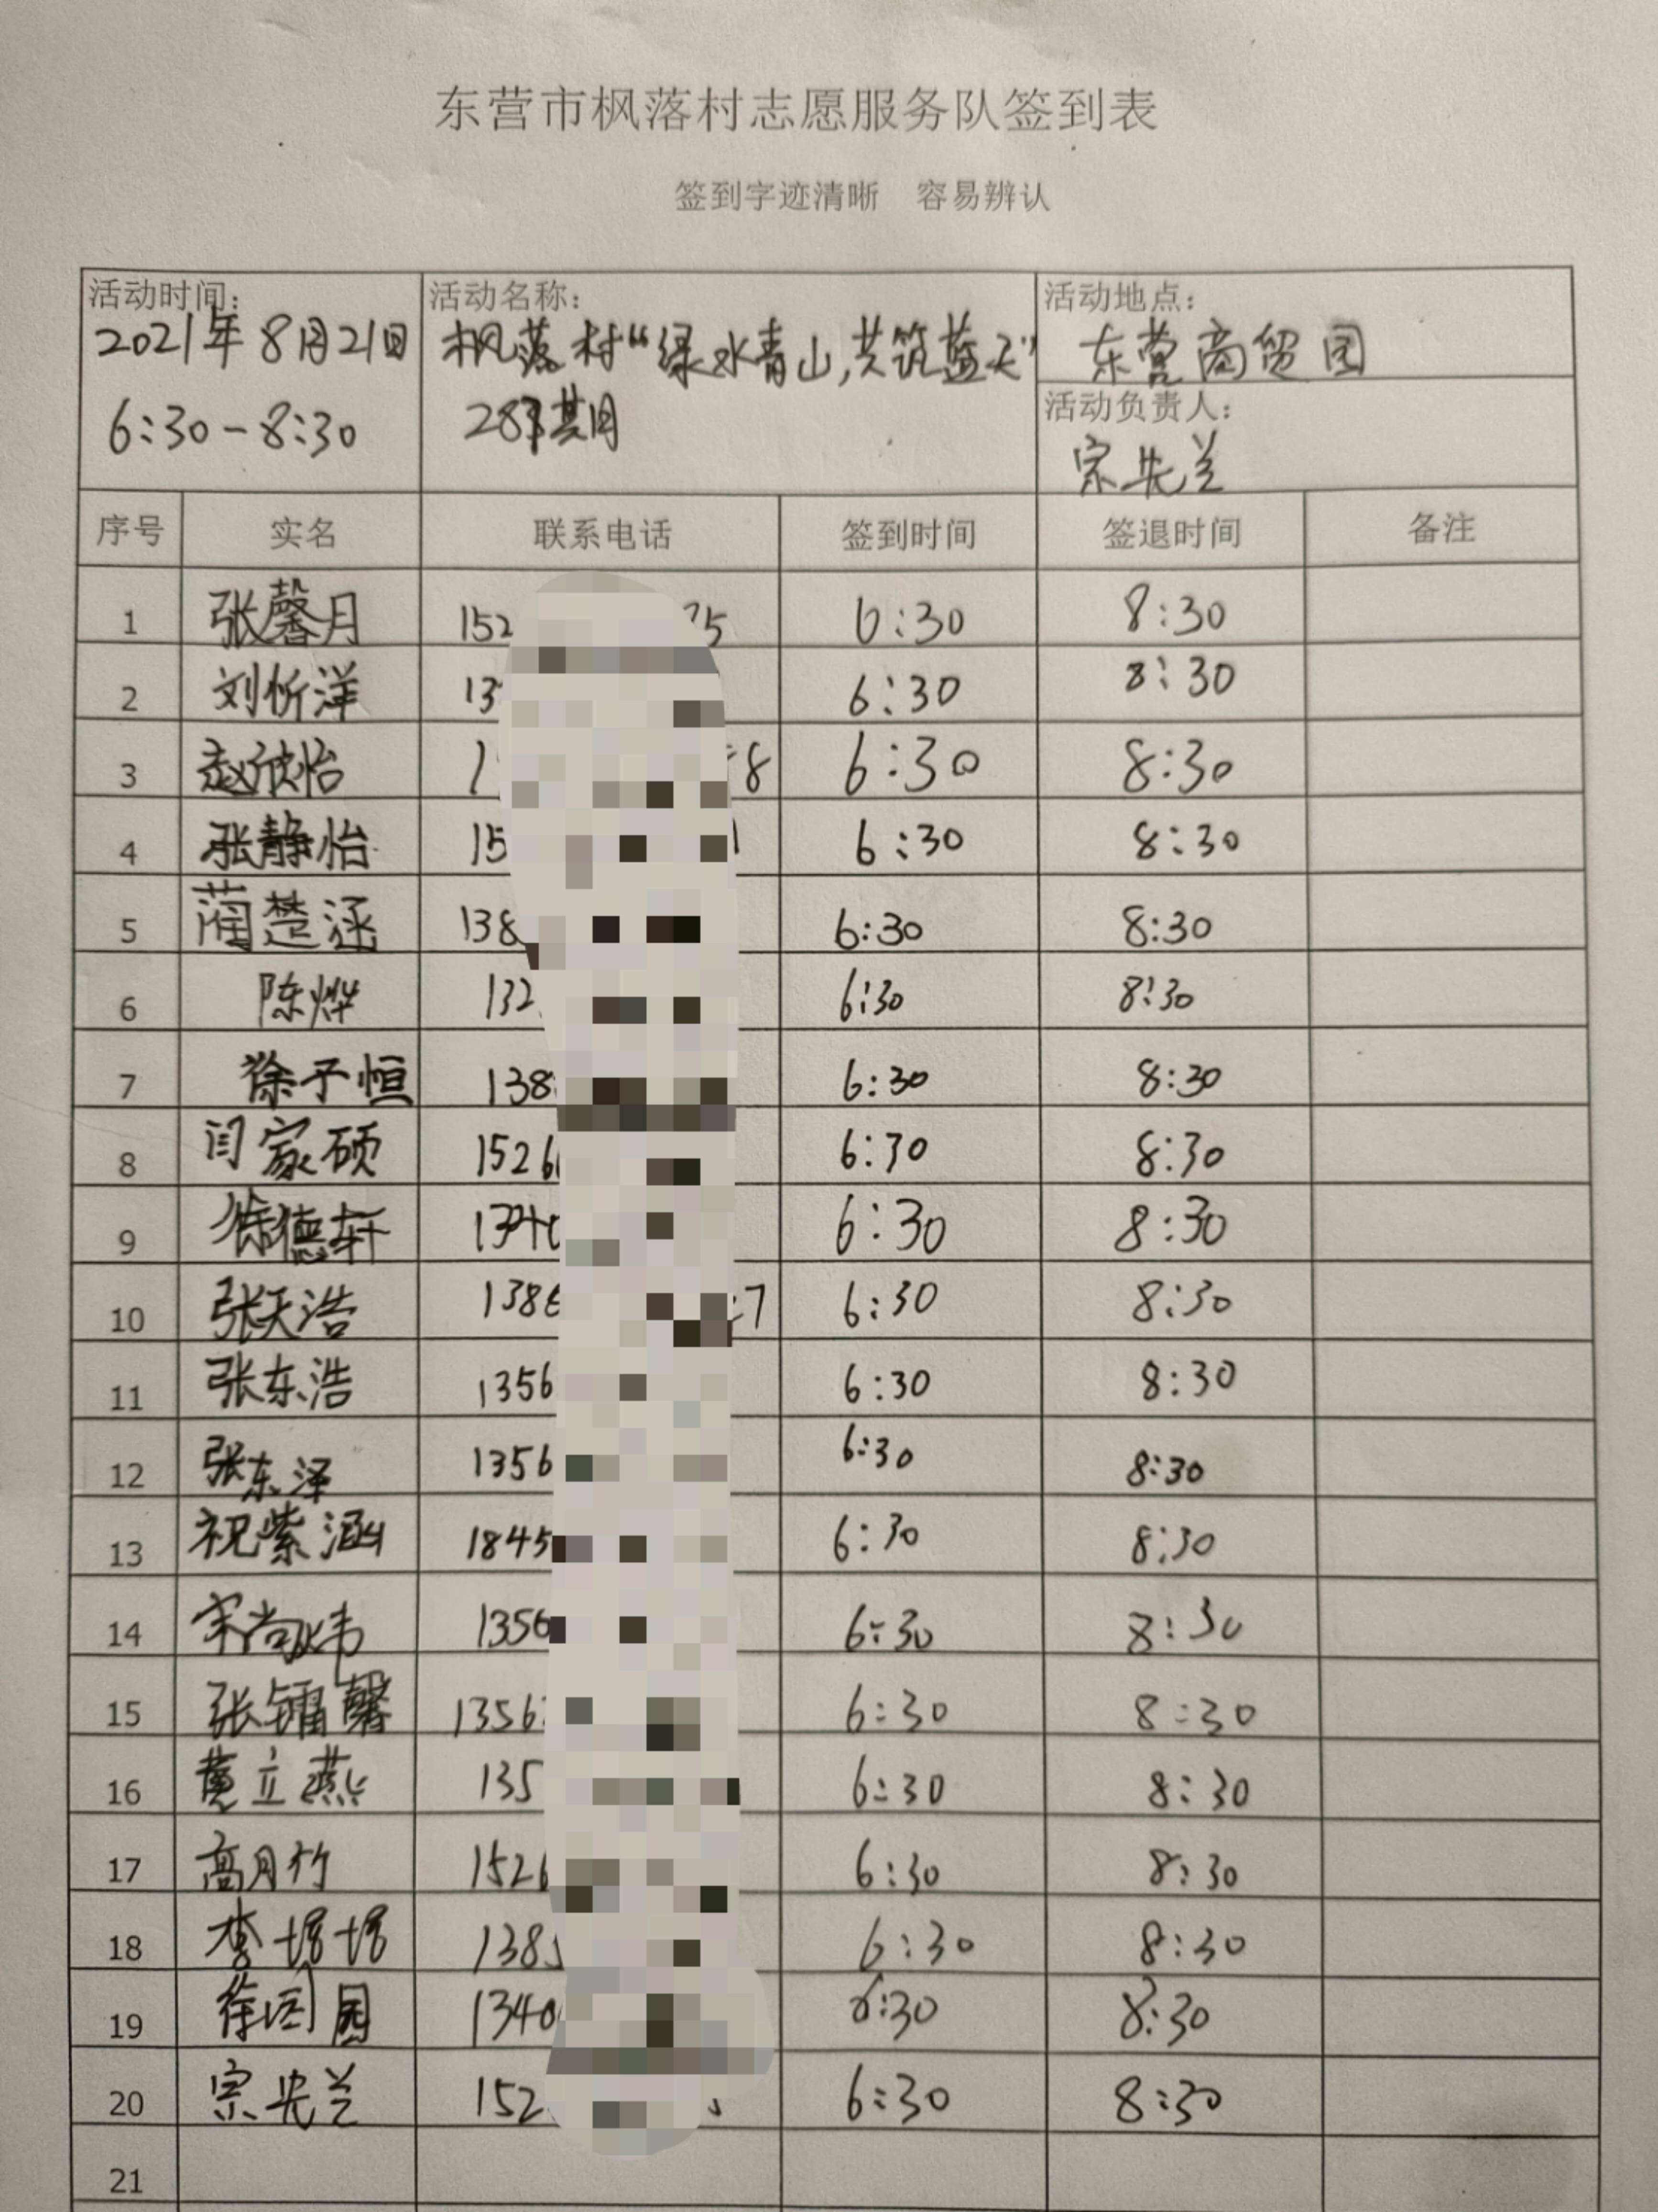 东营市枫落村志愿服务队签到表
签到字迹清晰 容易辨认
活动时间: 活动名称: 活动地点:
2021年8月21日 枫落村“绿水青山,共筑蓝天” 东营商贸园
活动负责人:
6:30-8:30 期
宗先兰
序号 实名 联系电话 签到时间 签退时间 备注
1 张馨月 152 75 6:30 8:30
2 刘忻洋 13 6:30 8:30
3 赵欣怡 1 8 6:30 8:30
4 张静怡 15 6:30 8:30
5 蔺楚涵 138 6:30 8:30
6 陈烨 132 6:30 8:30
7 徐子恒 138 6:30 8:30
8 闫家硕 1526 6:30 8:30
9 徐德轩 6:30 8:30
10 张天浩 138 7 6:30 8:30
11 张东浩 1356 6:30 8:30
12 张东泽 1356 6:30 8:30
13 祝紫涵 1845 6:30 8:30
14 宋尚炜 1356 6:30 8:30
15 张镭馨 1356 6:30 8:30
16 立燕 135 6:30 8:30
17 高月竹 1526 6:30 8:30
18 李 138 6:30 8:30
19 徐园园 1340 6:30 8:30
20 宗先兰 152 6:30 8:30
21